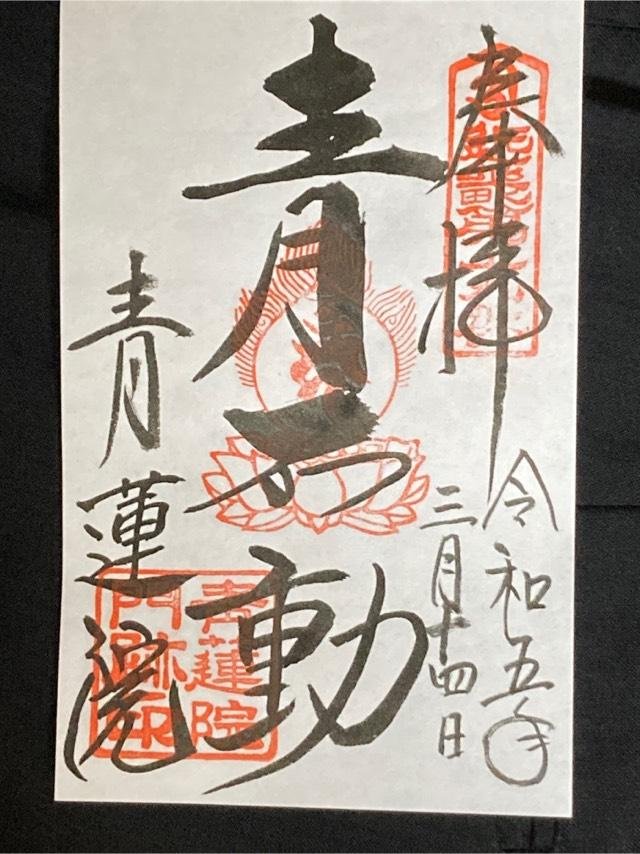 奉拝
令和五年
三月十四日
青不動
青蓮院
青蓮院
門跡印